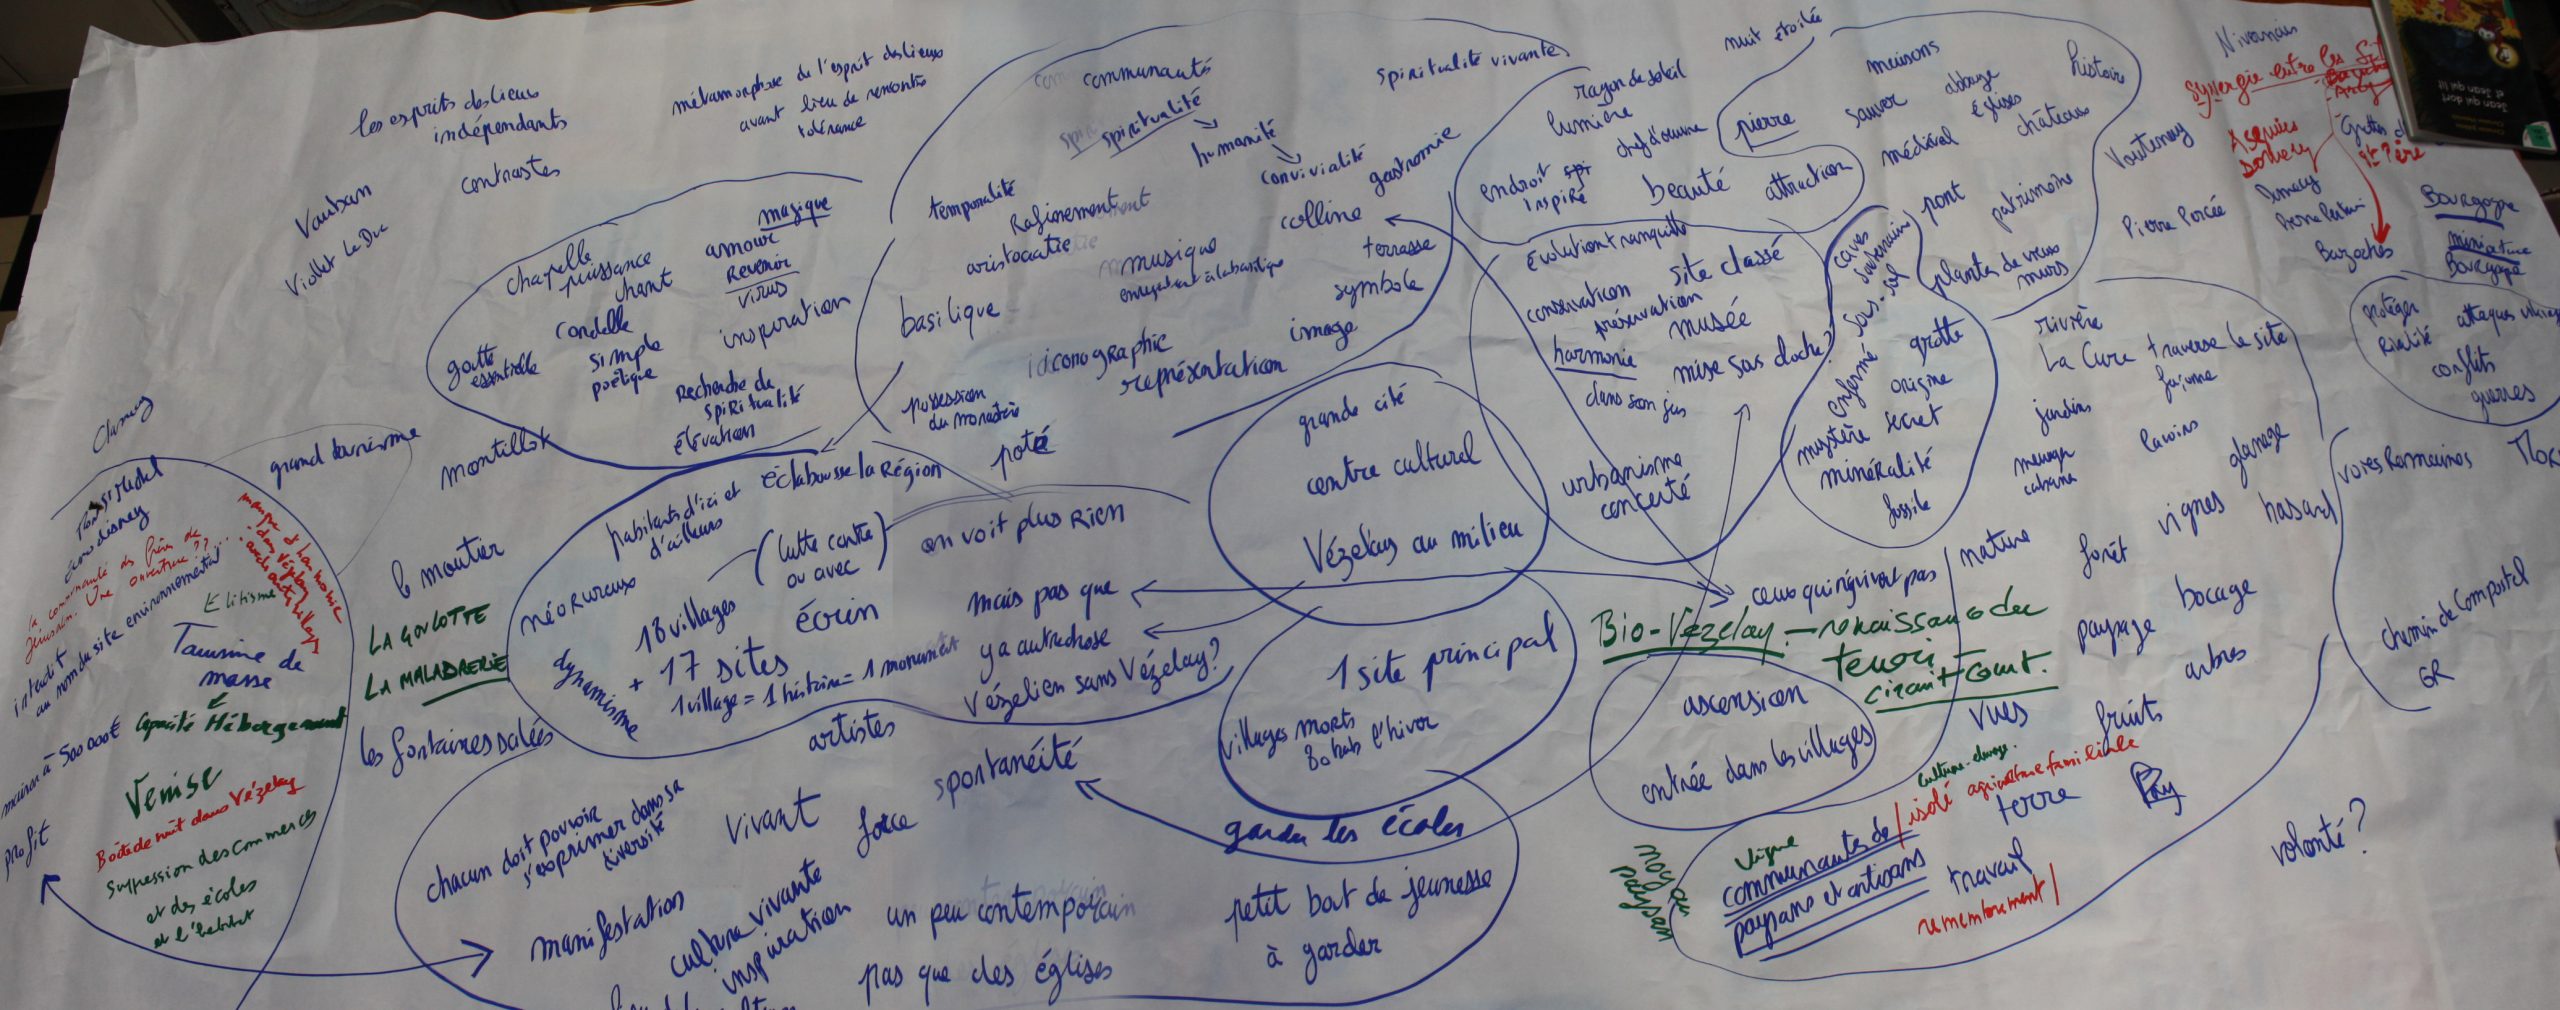 les esprits des lieux
indépendants
contrastes
Vauban
Viollet Le Duc
métamorphose de l'esprit des lieux
avant lieu de rencontre
tolérance
magique
amour
Revenir
virus
chapelle
puissance
chant
candelle
simple
poétique
inspiration
goutte
essentielle
Recherche de
spiritualité
élévation
communauté
spiritualité
humanité
convivialité
gastronomie
spiritualité vivante
temporalité
Rafinement
aristocratie
musique
enregistrant à la basilique
colline
terrasse
symbole
image
basilique
iconographie
représentation
possession
du monastère
poté
nuit étoilée
rayon de soleil
lumière
chef d'œuvre
endroit
inspiré
beauté
attraction
pierre
maisons
sauver
abbaye
églises
histoire
médiéval
châteaux
pont
patrimoine
plantes de vieux
murs
évolution tranquille
site classé
conservation
préservation
musée
harmonie
mise sous cloche?
dans son jus
urbanisme
concerté
caves
souterrains
sous-sol
enfermé
grotte
origine
mystère
secret
minéralité
fossile
Nivernais
Synergie entre les
Voutenay
Asquins
Pierre Percée
Bazoches
Bourgogne
miniature
Bourgogne
Jean qui dort
et Jean qui lit
protéger
rivalité
conflits
guerres
rivière
La Cure traverse le site
façonne
jardins
lavoirs
glanage
cabane
vignes
hasard
voies Romaines
chemin de Compostel
GR
nature
forêt
bocage
paysage
arbres
vues
fruits
terre
travail
volonté?
grande cité
centre culturel
Vézelay au milieu
1 site principal
villages morts
80 hab l'hiver
garder les écoles
petit bout de jeunesse
à garder
ceux qui n'y vivent pas
Bio-Vézelay - renaissance du
circuit-court.
ascension
entrée dans les villages
culture-élevage.
isolé
agriculture familiale
vigne
communautés de
paysans et artisans
remembrement
noyau
paysan
éclabousse la Région
habitants d'ici et
d'ailleurs
(lutte contre
ou avec)
néorureaux
18 villages
+ 17 sites
écrin
1 village = 1 histoire = 1 monument
dynamisme
on voit plus rien
mais pas que
y a autre chose
Vézelien sans Vézelay?
Clamecy
grand tourisme
montillot
le moutier
LA GOULOTTE
LA MALADRERIE
les fontaines salées
euro disney
la communauté des frères de
Jérusalem. Une ouverture ??...
interdit
au nom du site environnemental
Elitisme
Tourisme de
masse
Capacité Hébergement
maison à - 500 000 €
profit
Venise
Boîte de nuit dans Vézelay
Suppression des commerces
et des écoles
et l'habitat
artistes
spontanéité
chacun doit pouvoir
s'exprimer dans sa
diversité
vivant
force
manifestation
culture vivante
inspiration
un peu contemporain
pas que des églises